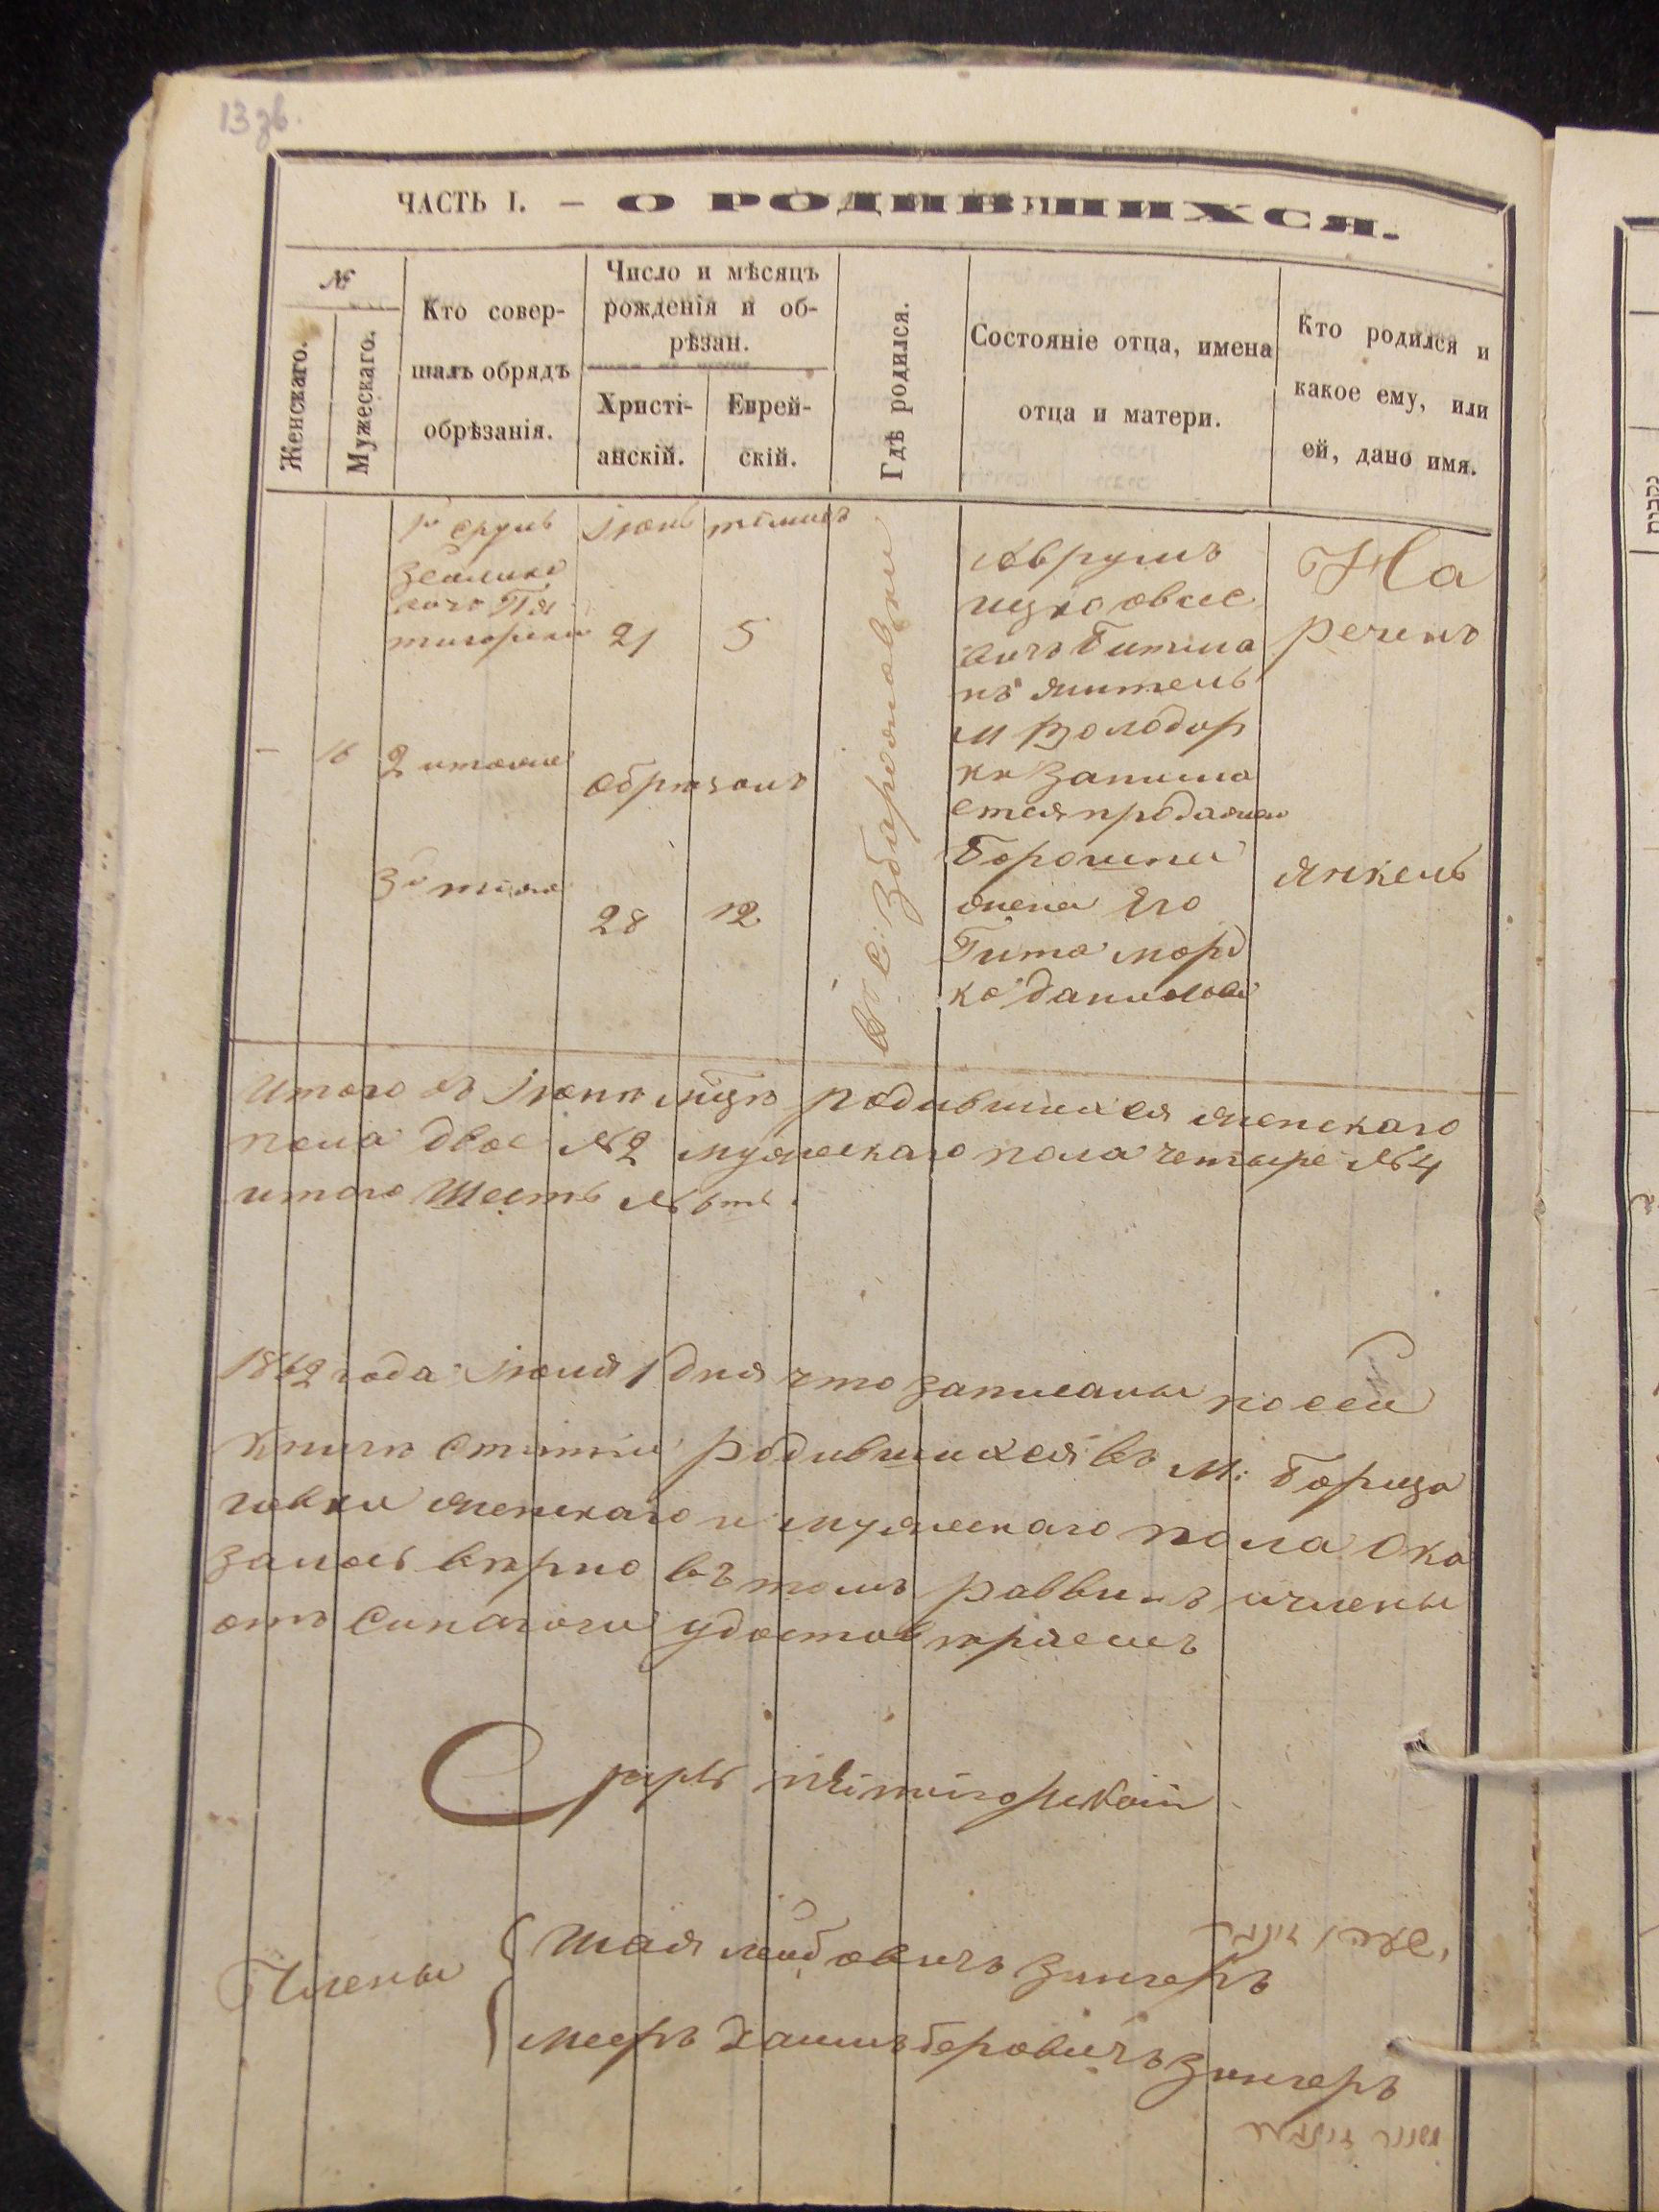 13 зв.
ЧАСТЬ I. — О РОДИВШИХСЯ.
№
Женскаго.
Мужескаго.
Кто совер-
шалъ обрядъ
обрѣзанія.
Число и мѣсяцъ
рожденія и об-
рѣзан.
Христі-
анскій.
Еврей-
скій.
Гдѣ родился.
Состояніе отца, имена
отца и матери.
Кто родился и
какое ему, или
ей, дано имя.
Срулъ
21
5
— 16
обрѣзанъ
28
12
Во С: Збароновки
Аврумъ
вичъ Битма
нъ житель
м Володар
ки занима
ется продажею
жена Его
Гитя морд
ко Данилова
На
реченъ
Янкель
Итого въ Іюнѣ мѣцѣ родившихся женскаго
пола двое № 2 мужескаго пола четыре № 4
итого шесть № 6ть.
1862 года Іюля 1 дня что записаны по сей
книгѣ статьи родившихся въ М: Борщa
говки женскаго и мужескаго пола Ока
залось вѣрно въ томъ раввинъ и члены
отъ Синагоги удостовѣряемъ
Члены
Шая Лейбовичъ Зингеръ
Мееръ Хаимъ Беровичъ Зингеръ